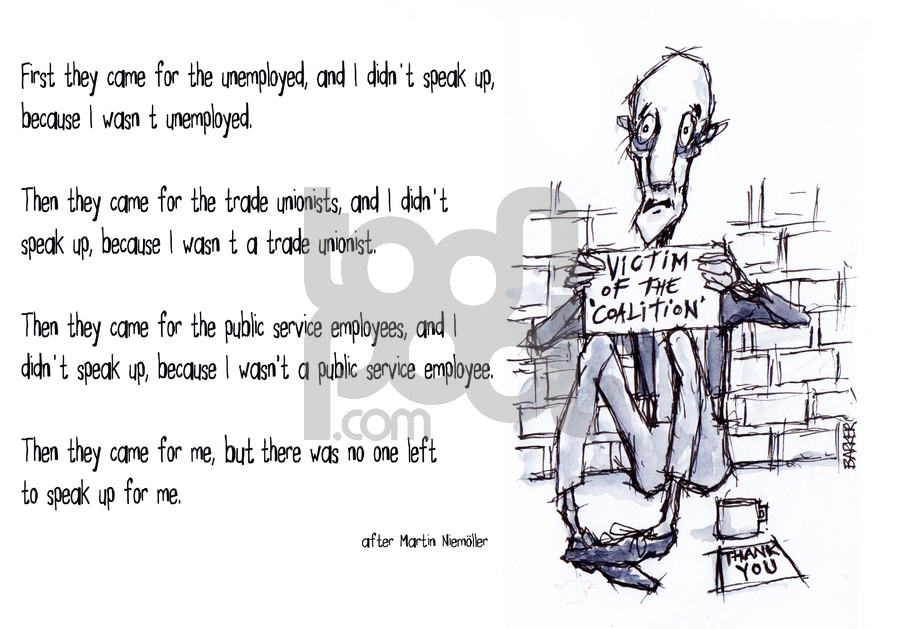 First they came for the unemployed, and I didn't speak up,
because I wasn t unemployed.
Then they came for the trade unionists, and I didn't
speak up, because I wasn t a trade unionist.
Then they came for the public service employees, and I
didn't speak up, because I wasn't a public service employee.
Then they came for me, but there was no one left
to speak up for me.
after Martin Niemöller
VICTIM
OF THE
'COALITION'
BARKER
THANK
YOU
toonpool
.com